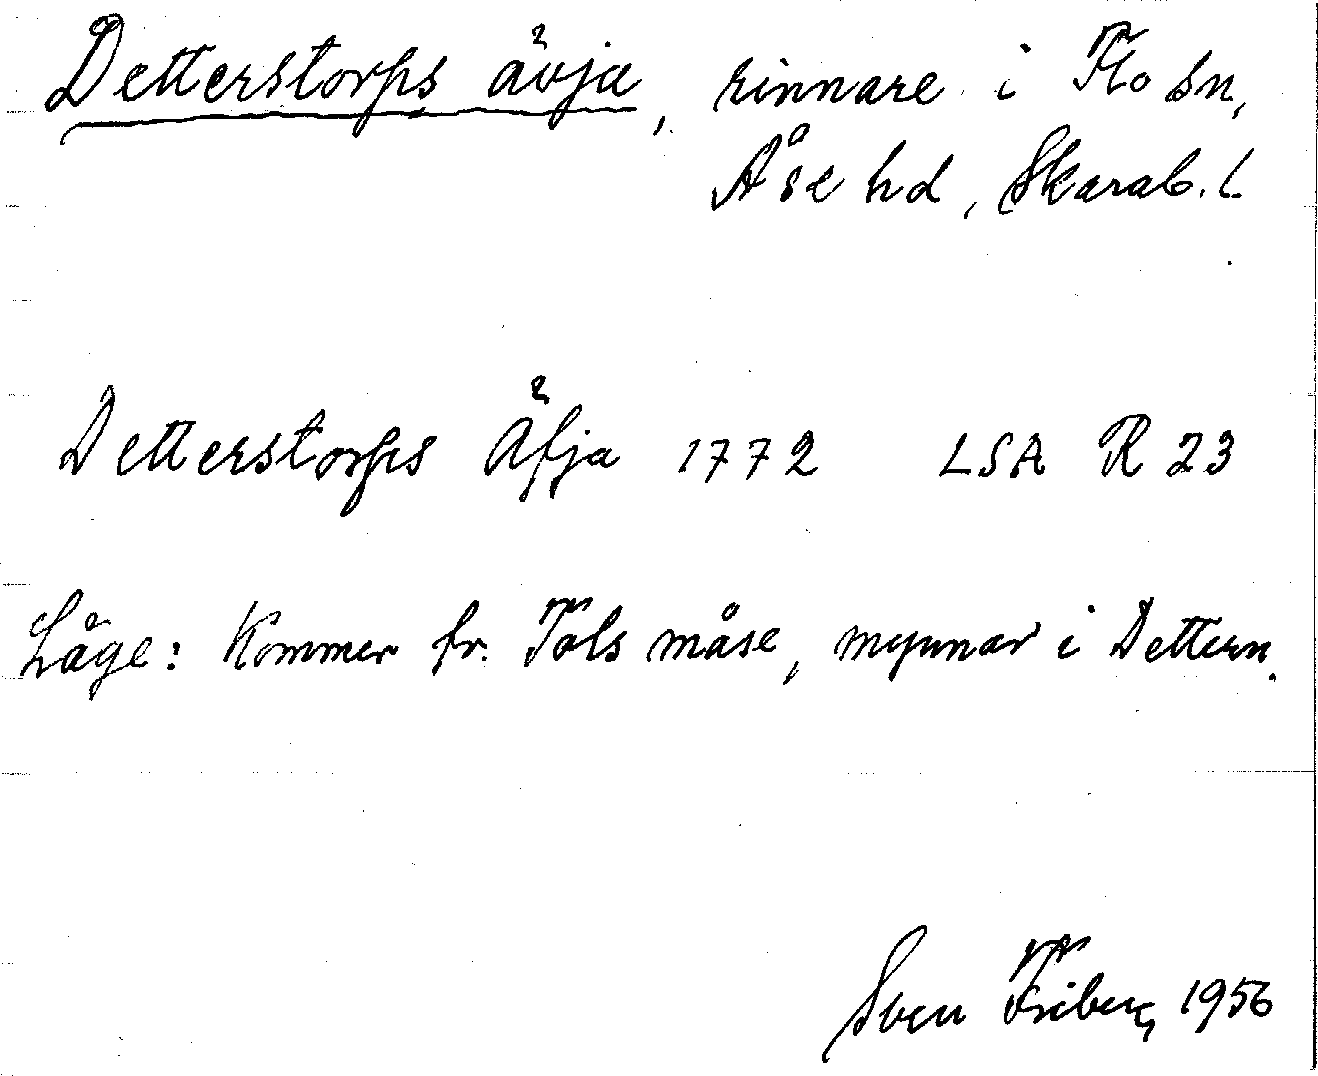 Detterstorps ävja, rinnare i Flo sn,
Åse hd, Skarab. l.
Detterstorps Äfja 1772 LSA R 23
Läge: Kommer fr. Tols måse, mynnar i Dettern.
Sven Friberg 1956